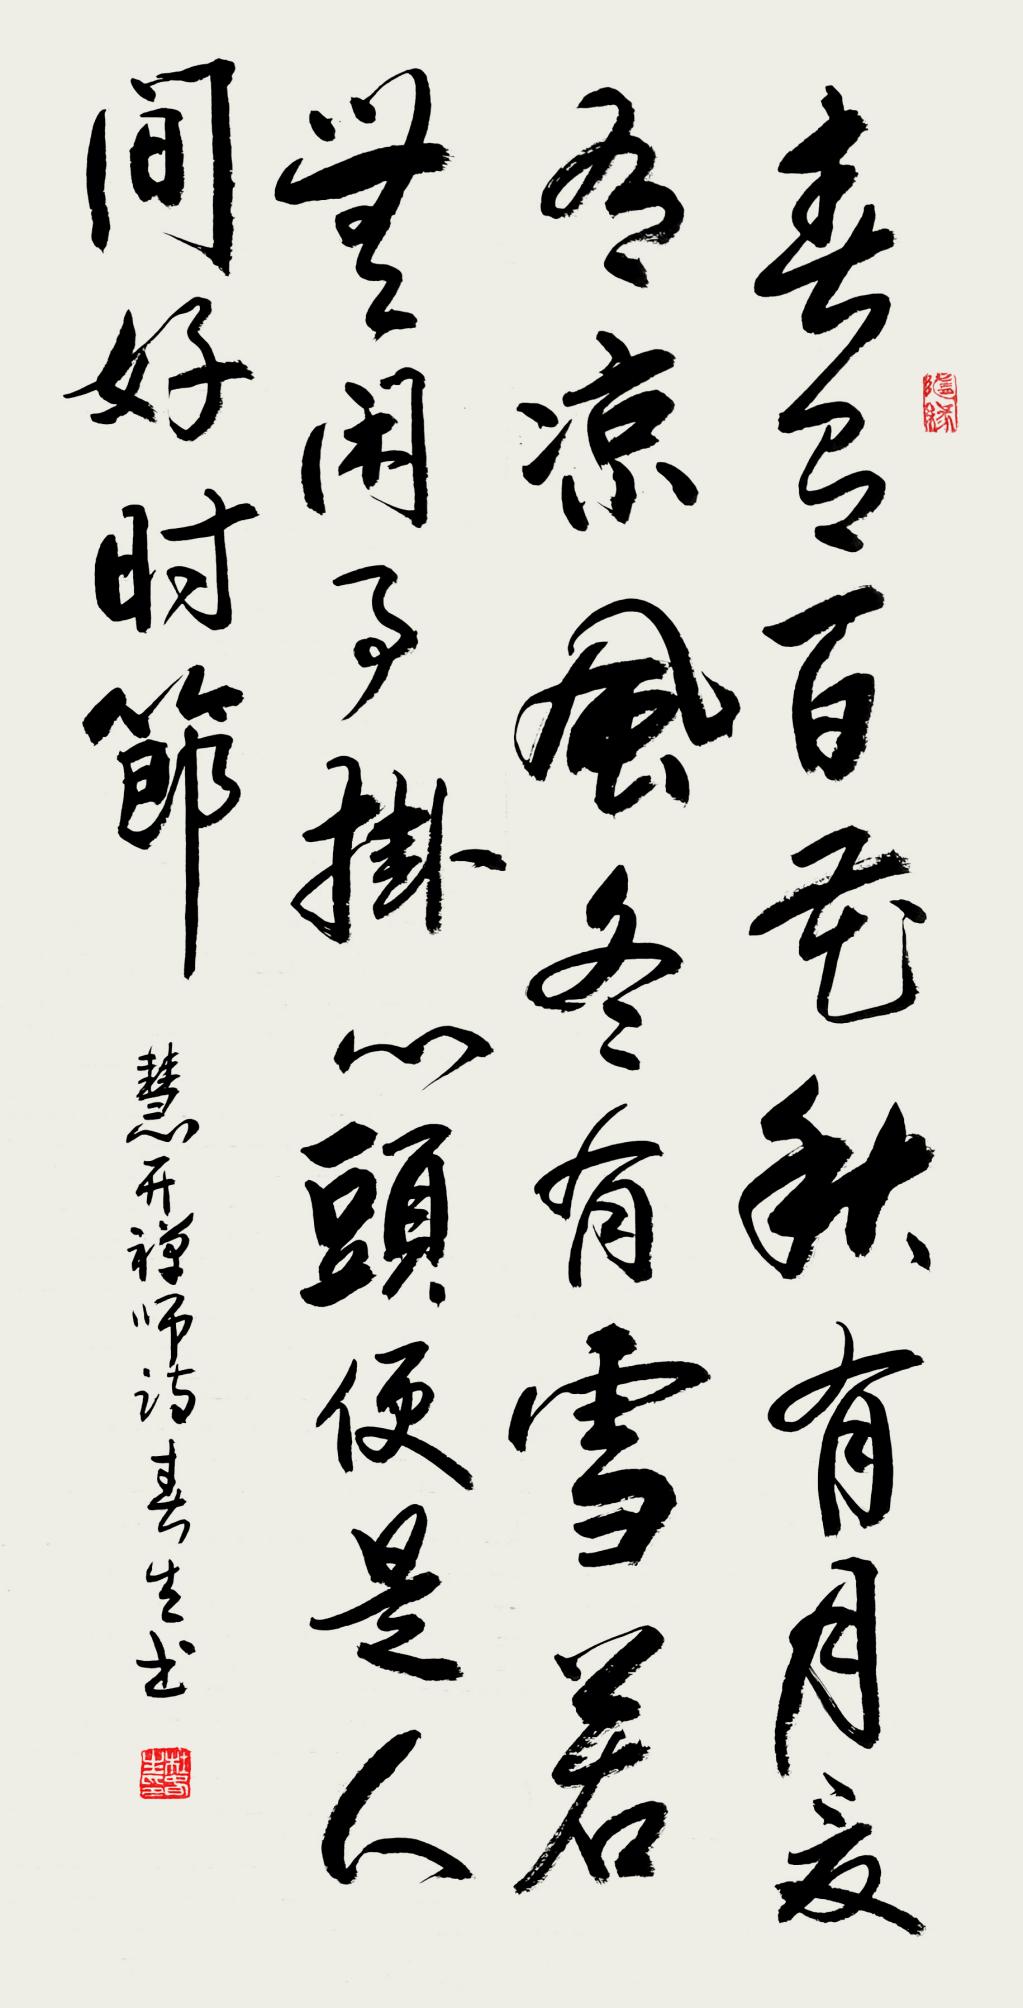 春有百花秋有月夏
有凉風冬有雪若
無闲事掛心頭便是人
间好时節
慧开禅师诗春生书